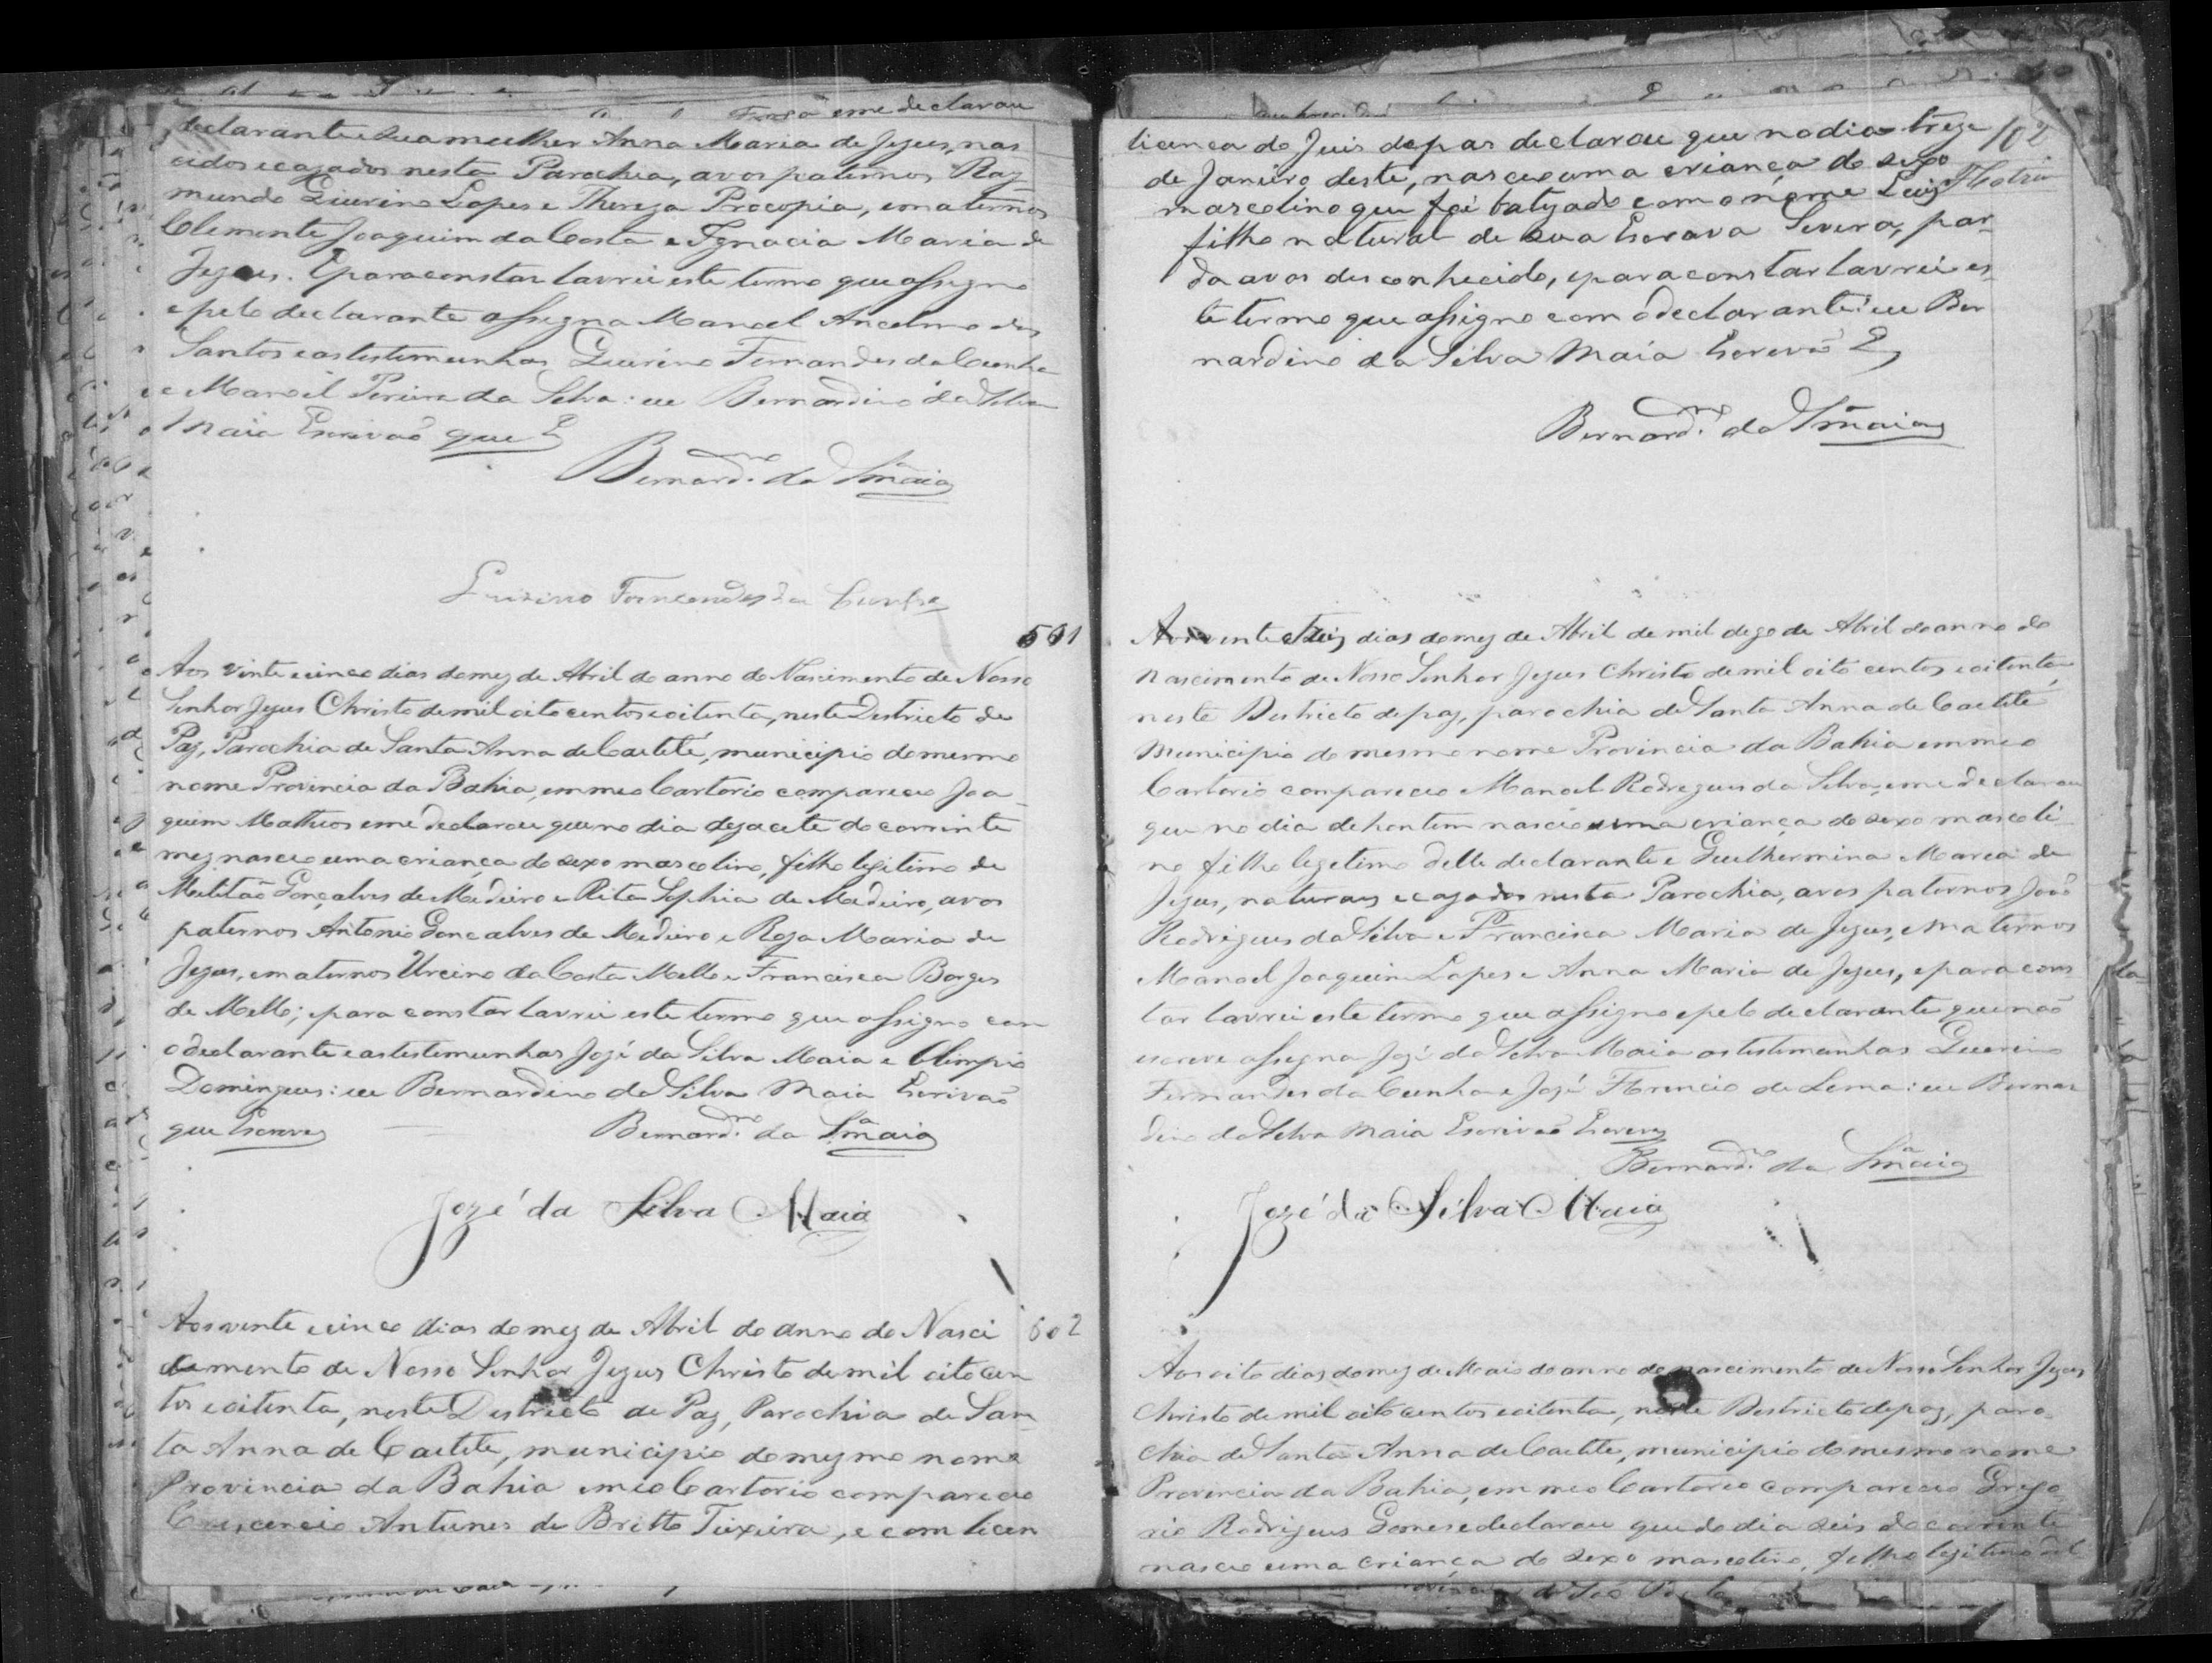 eme declarou
declarante e sua mulher Anna Maria de Jezus, nas
cidos e cazados nesta Parochia, avos paternos Ray
mundo Quirino Lopes e Thereza Procopia, e maternos
Clemente Joaquim da Costa e Ignacia Maria de
Jezus. E para constar lavrei este termo que assigno
e pelo declarante assigna Manoel Ancelmo dos
Santos e as testimunhas Quirino Fernandes da Cunha
e Manoel Pereira da Silva: eu Bernardino da Silva
Maia Escrivaõ que E
Bernard.no da S.a Maia
Quirino Fernandes da Cunha
501
Aos vinte e cinco dias do mez de Abril do anno do Nascimento de Nosso
Senhor Jezus Christo de mil oito centos e oitenta, neste Destricto de
Paz, Parochia de Santa Anna de Caetité, municipio do mesmo
nome Provincia da Bahia, em meo Cartorio compareceo Joa
quim Matheos e me declarou que no dia dezacete do corrinte
mez nasceo uma criança do sexo mascolino, filho legitimo de
Melitaõ Gonçalves de Mediiro e Rita Sophia de Mediiro, avos
paternos Antonio Goncalves de Mediiro e Roza Maria de
Jezus, e maternos Urcino da Costa Mello e Francisca Borges
de Mello; e para constar lavrei este termo que assigno com
o declarante e as testimunhas Jozé da Silva Maia e Olimpio
Domingues: eu Bernardino da Silva Maia Escrivaõ
que Escrevy
Bernard.no da S.a Maia
Jozé da Silva Maia
Aos vinte e cinco dias do mez de Abril do anno do Nasci 502
mento de Nosso Senhor Jezus Christo de mil oito cen
tos e oitenta, neste Destricto de Paz, Parochia de San
ta Anna de Caetite, municipio do mezmo nome
Provincia da Bahia em meo Cartorio compareceo
Crescencio Antunes de Britto Teixeira, e com licen
licenca do Juis de pas declarou que no dia treze 102
de Janeiro deste, nasceo uma criança do sexo
mascolino que foi batizado com o nome Luiz
filho natural de sua Escrava Severa, par
da avos desconhecido, e para constar lavrei es
te termo que assigno com o declarante: eu Ber
nardino da Silva Maia Escrevaõ E
Bernard.no da S.a Maia
Aos vinte e seis dias do mez de Abril de mil dezo de Abril do anno do
Nascimento de Nosso Senhor Jezus Christo de mil oito centos e oitenta,
neste Districto de paz, parochia de Santa Anna de Caetité
Municipio do mesmo nome Provincia da Bahia em meo
Cartorio compareceo Manoel Rodrigues da Silva, e me declarou
que no dia de hontem nasceo uma criança do sexo mascoli
no filho legetimo delle declarante e Guilhermina Marea de
Jezus, naturaes e cazados nesta Parochia, avos paternos Joaõ
Rodrigues da Silva e Francisca Maria de Jezus, e maternos
Manoel Joaquim Lopes e Anna Maria de Jezus, e para cons
tar lavrei este termo que assigno e pelo declarante que naõ
escreve assegna Jozé da Silva Maia as testimunhas Querino
Fernandes da Cunha e Jozé Florencio de Lema: eu Bernar
dino da Silva Maia Escrivaõ Escrevy
Bernard.no da S.a Maia
Jozé da Silva Maia
Aos oito dias do mez de Maio do anno do nascimento de Nosso Senhor Jezus
Christo de mil oito centos e oitenta, neste Destricto de paz, paro
chia de Santa Anna de Caetite, municipio do mesmo nome
Provincia da Bahia, em meo Cartorio compareceo Grego
rio Rodrigues Gomes e declarou que do dia seis do corrente
nasceo uma criança do sexo mascolino, filho legitimo del